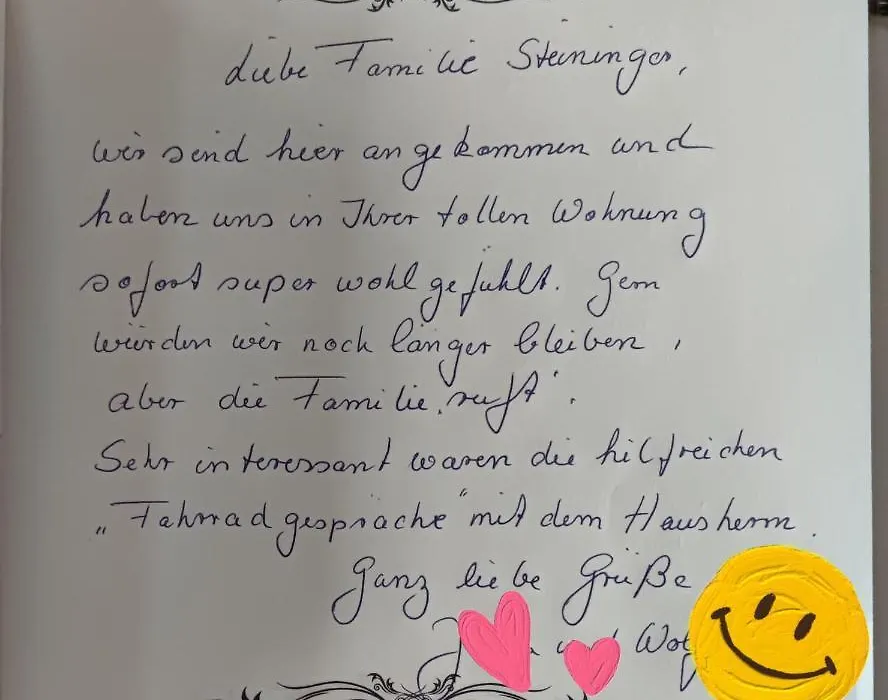 Liebe Familie Steininger,
wir sind hier angekommen und
haben uns in Ihrer tollen Wohnung
sofort super wohl gefühlt. Gern
würden wir noch länger bleiben,
aber die Familie "ruft".
Sehr interessant waren die hilfreichen
„Fahrradgespräche“ mit dem Hausherrn.
Ganz liebe Grüße